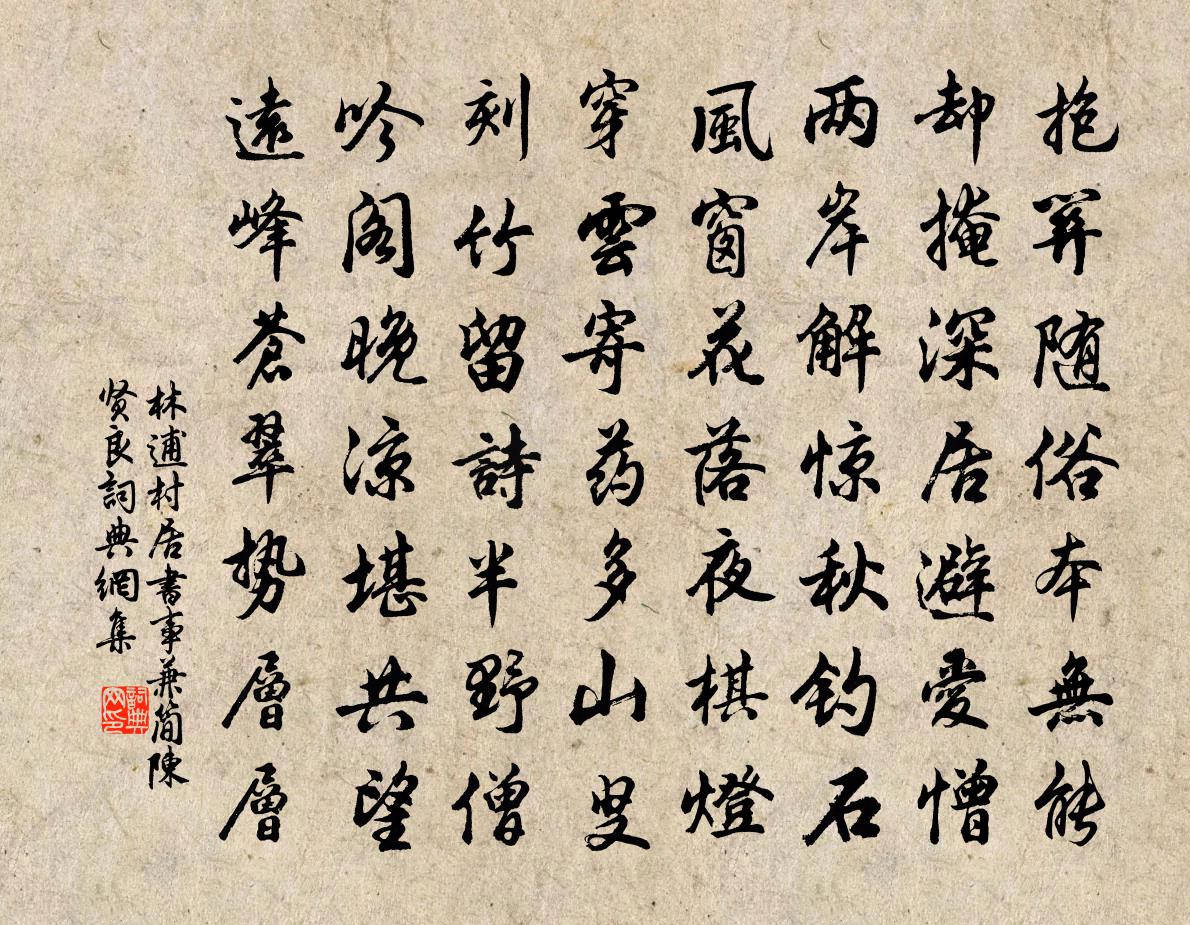 抱随俗本無能
却掩深居避愛憎
两岸解惊秋钓石
風窗花落夜棋燈
穿雲寄药多山叟
刻竹留詩半野僧
吟阁晚凉堪共望
遠峰蒼翠势層層
林逋村居書事兼简陳
贤良詞典網集
詞典
网印